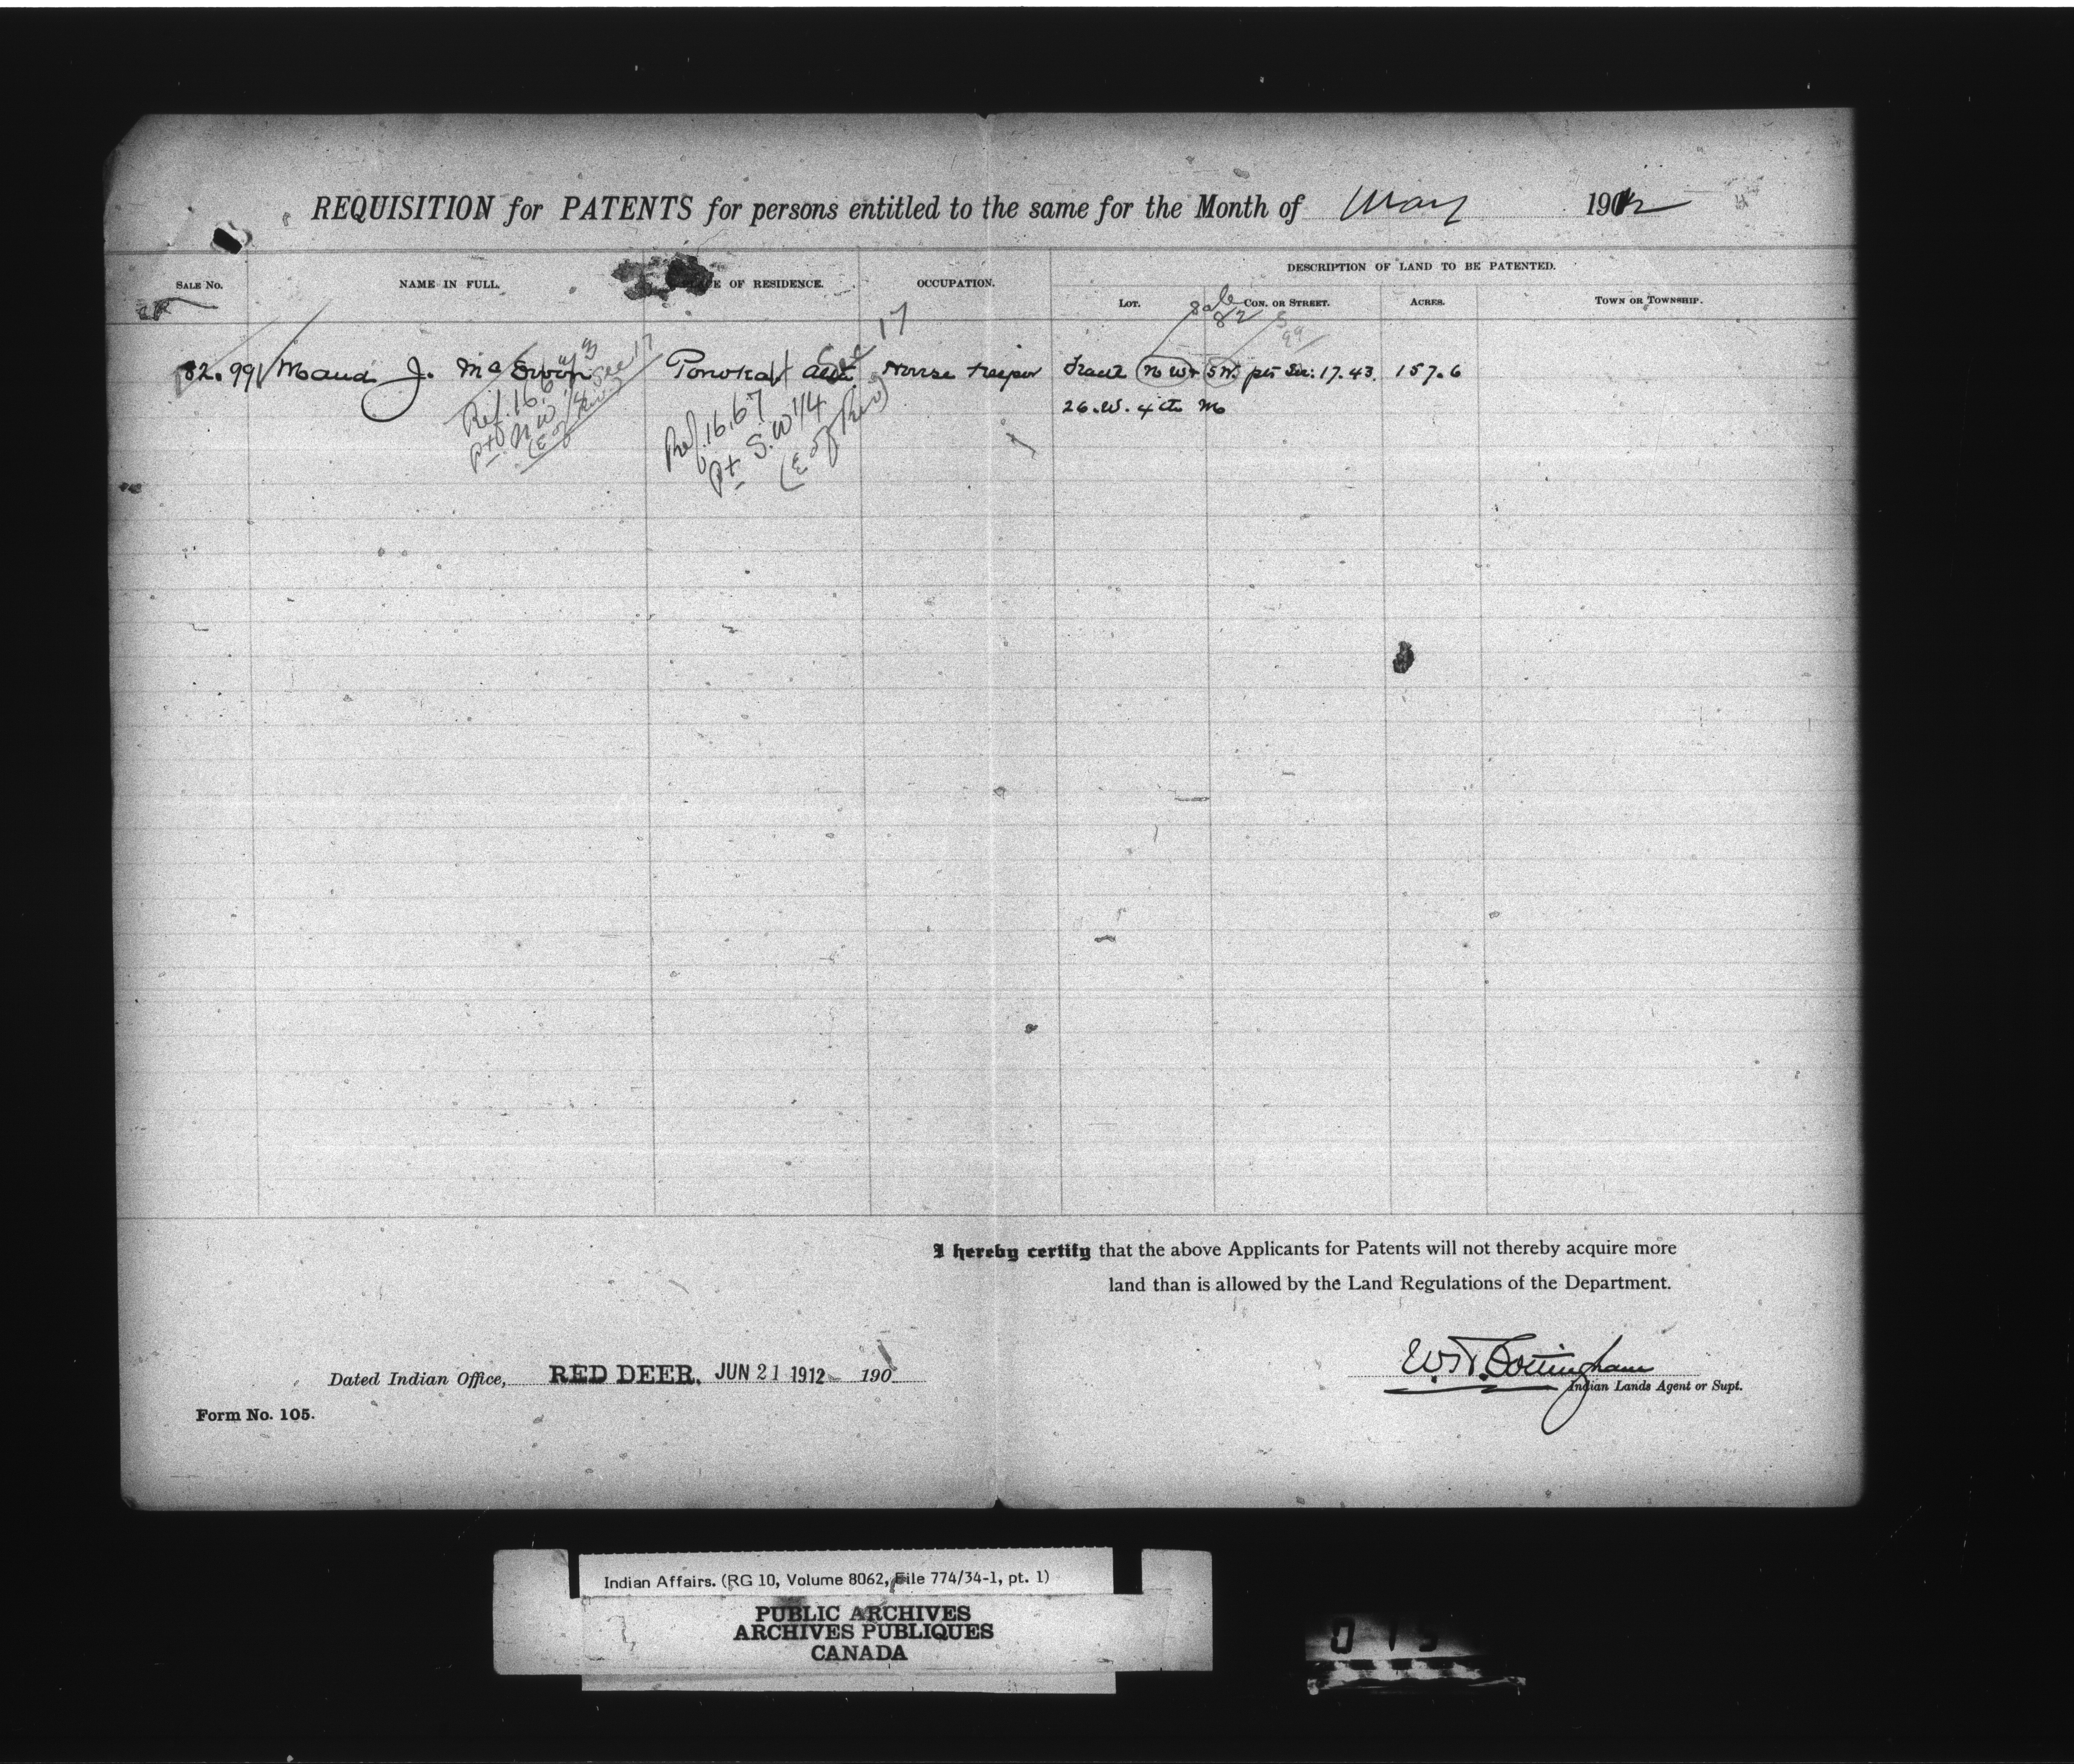 REQUISITION for PATENTS for persons entitled to the same for the Month of May 1912
SALE No. NAME IN FULL. PLACE OF RESIDENCE. OCCUPATION. DESCRIPTION OF LAND TO BE PATENTED.
LOT. CON. OR STREET. ACRES. TOWN OR TOWNSHIP.
Sale 82
S 99
82.99 Maud J. McEwen Ponoka Alta House Keeper Fracl N W & S W. pts Sec: 17. 43. 157.6
26. W. 4th M
Ref. 16,673
pt N.W. 1/4 Sec 17
(E of River)
Ref. 16,67
Pt S.W 1/4 Sec 17
(E of Riv)
I hereby certify that the above Applicants for Patents will not thereby acquire more
land than is allowed by the Land Regulations of the Department.
W. Cottingham
Indian Lands Agent or Supt.
Dated Indian Office, RED DEER, JUN 21 1912 190
Form No. 105.
Indian Affairs. (RG 10, Volume 8062, File 774/34-1, pt. 1)
PUBLIC ARCHIVES
ARCHIVES PUBLIQUES
CANADA
015